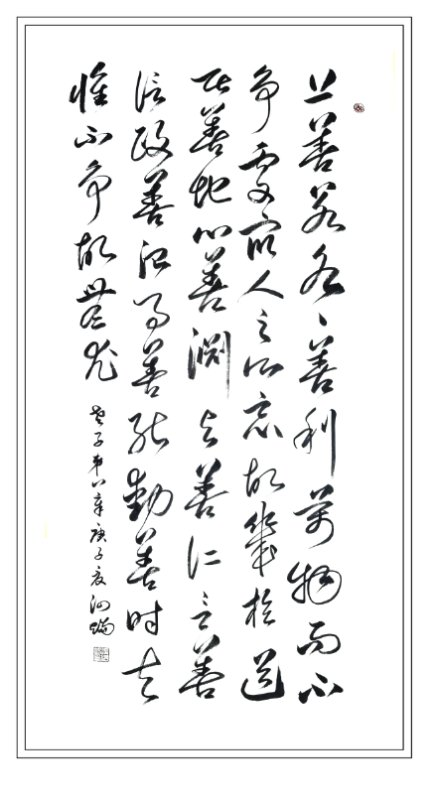 上善若水〻善利萬物而不
争處衆人之所惡故幾於道
居善地心善淵与善仁言善
信政善治事善能動善时夫
惟不争故無尤
老子第八章庚子夏